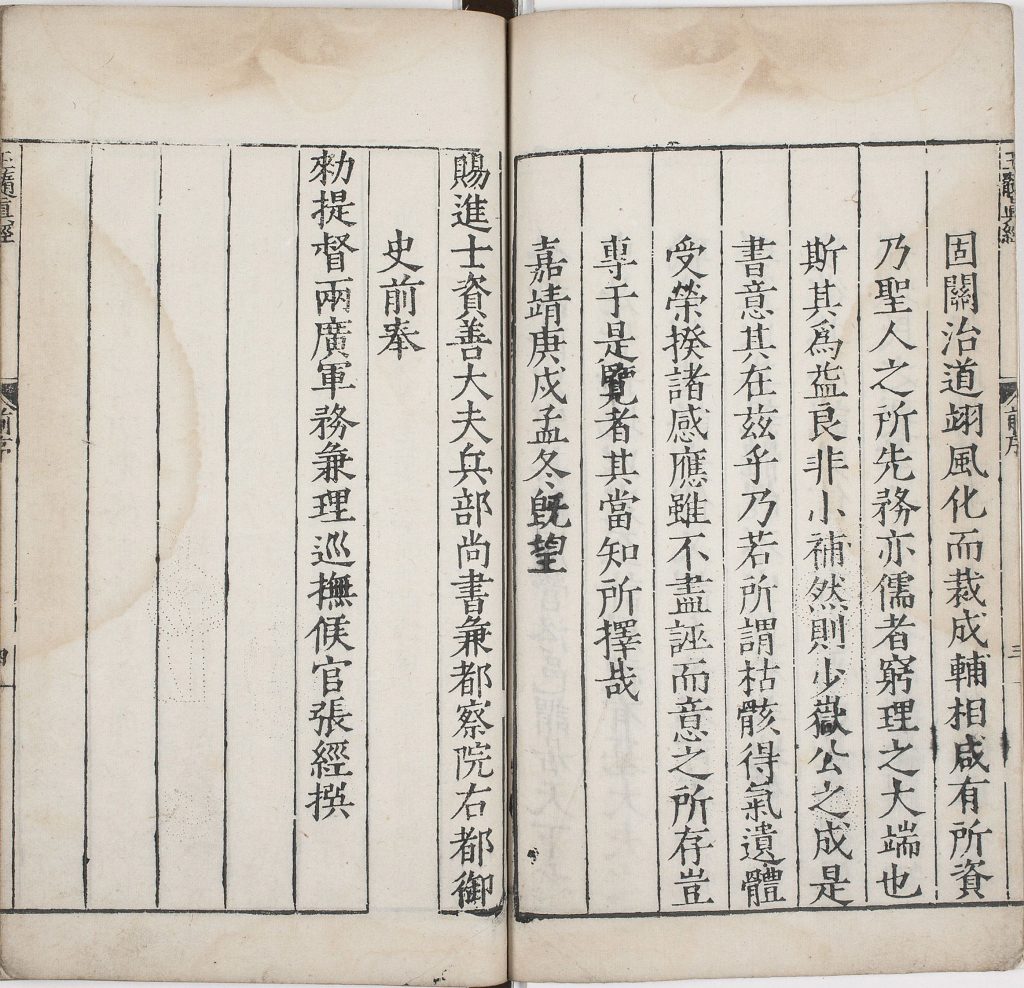 固關治道翊風化而裁成輔相咸有所資
乃聖人之所先務亦儒者窮理之大端也
斯其爲益良非小補然則少嶽公之成是
書意其在茲乎乃若所謂枯骸得氣遺體
受榮揆諸感應雖不盡誣而意之所存豈
專于是覽者其當知所擇哉
嘉靖庚戌孟冬旣望
賜進士資善大夫兵部尚書兼都察院右都御
史前奉
勑提督兩廣軍務兼理巡撫候官張經撰